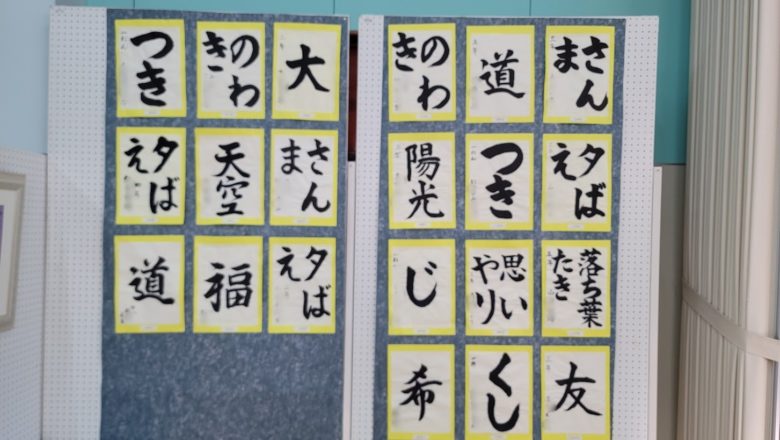 つき
のわ
き
大
夕ば
え
天空
さん
ま
道
福
夕ば
え
のわ
き
道
さん
ま
陽光
つき
夕ば
え
じ
思い
やり
落ち葉
たき
希
くし
友